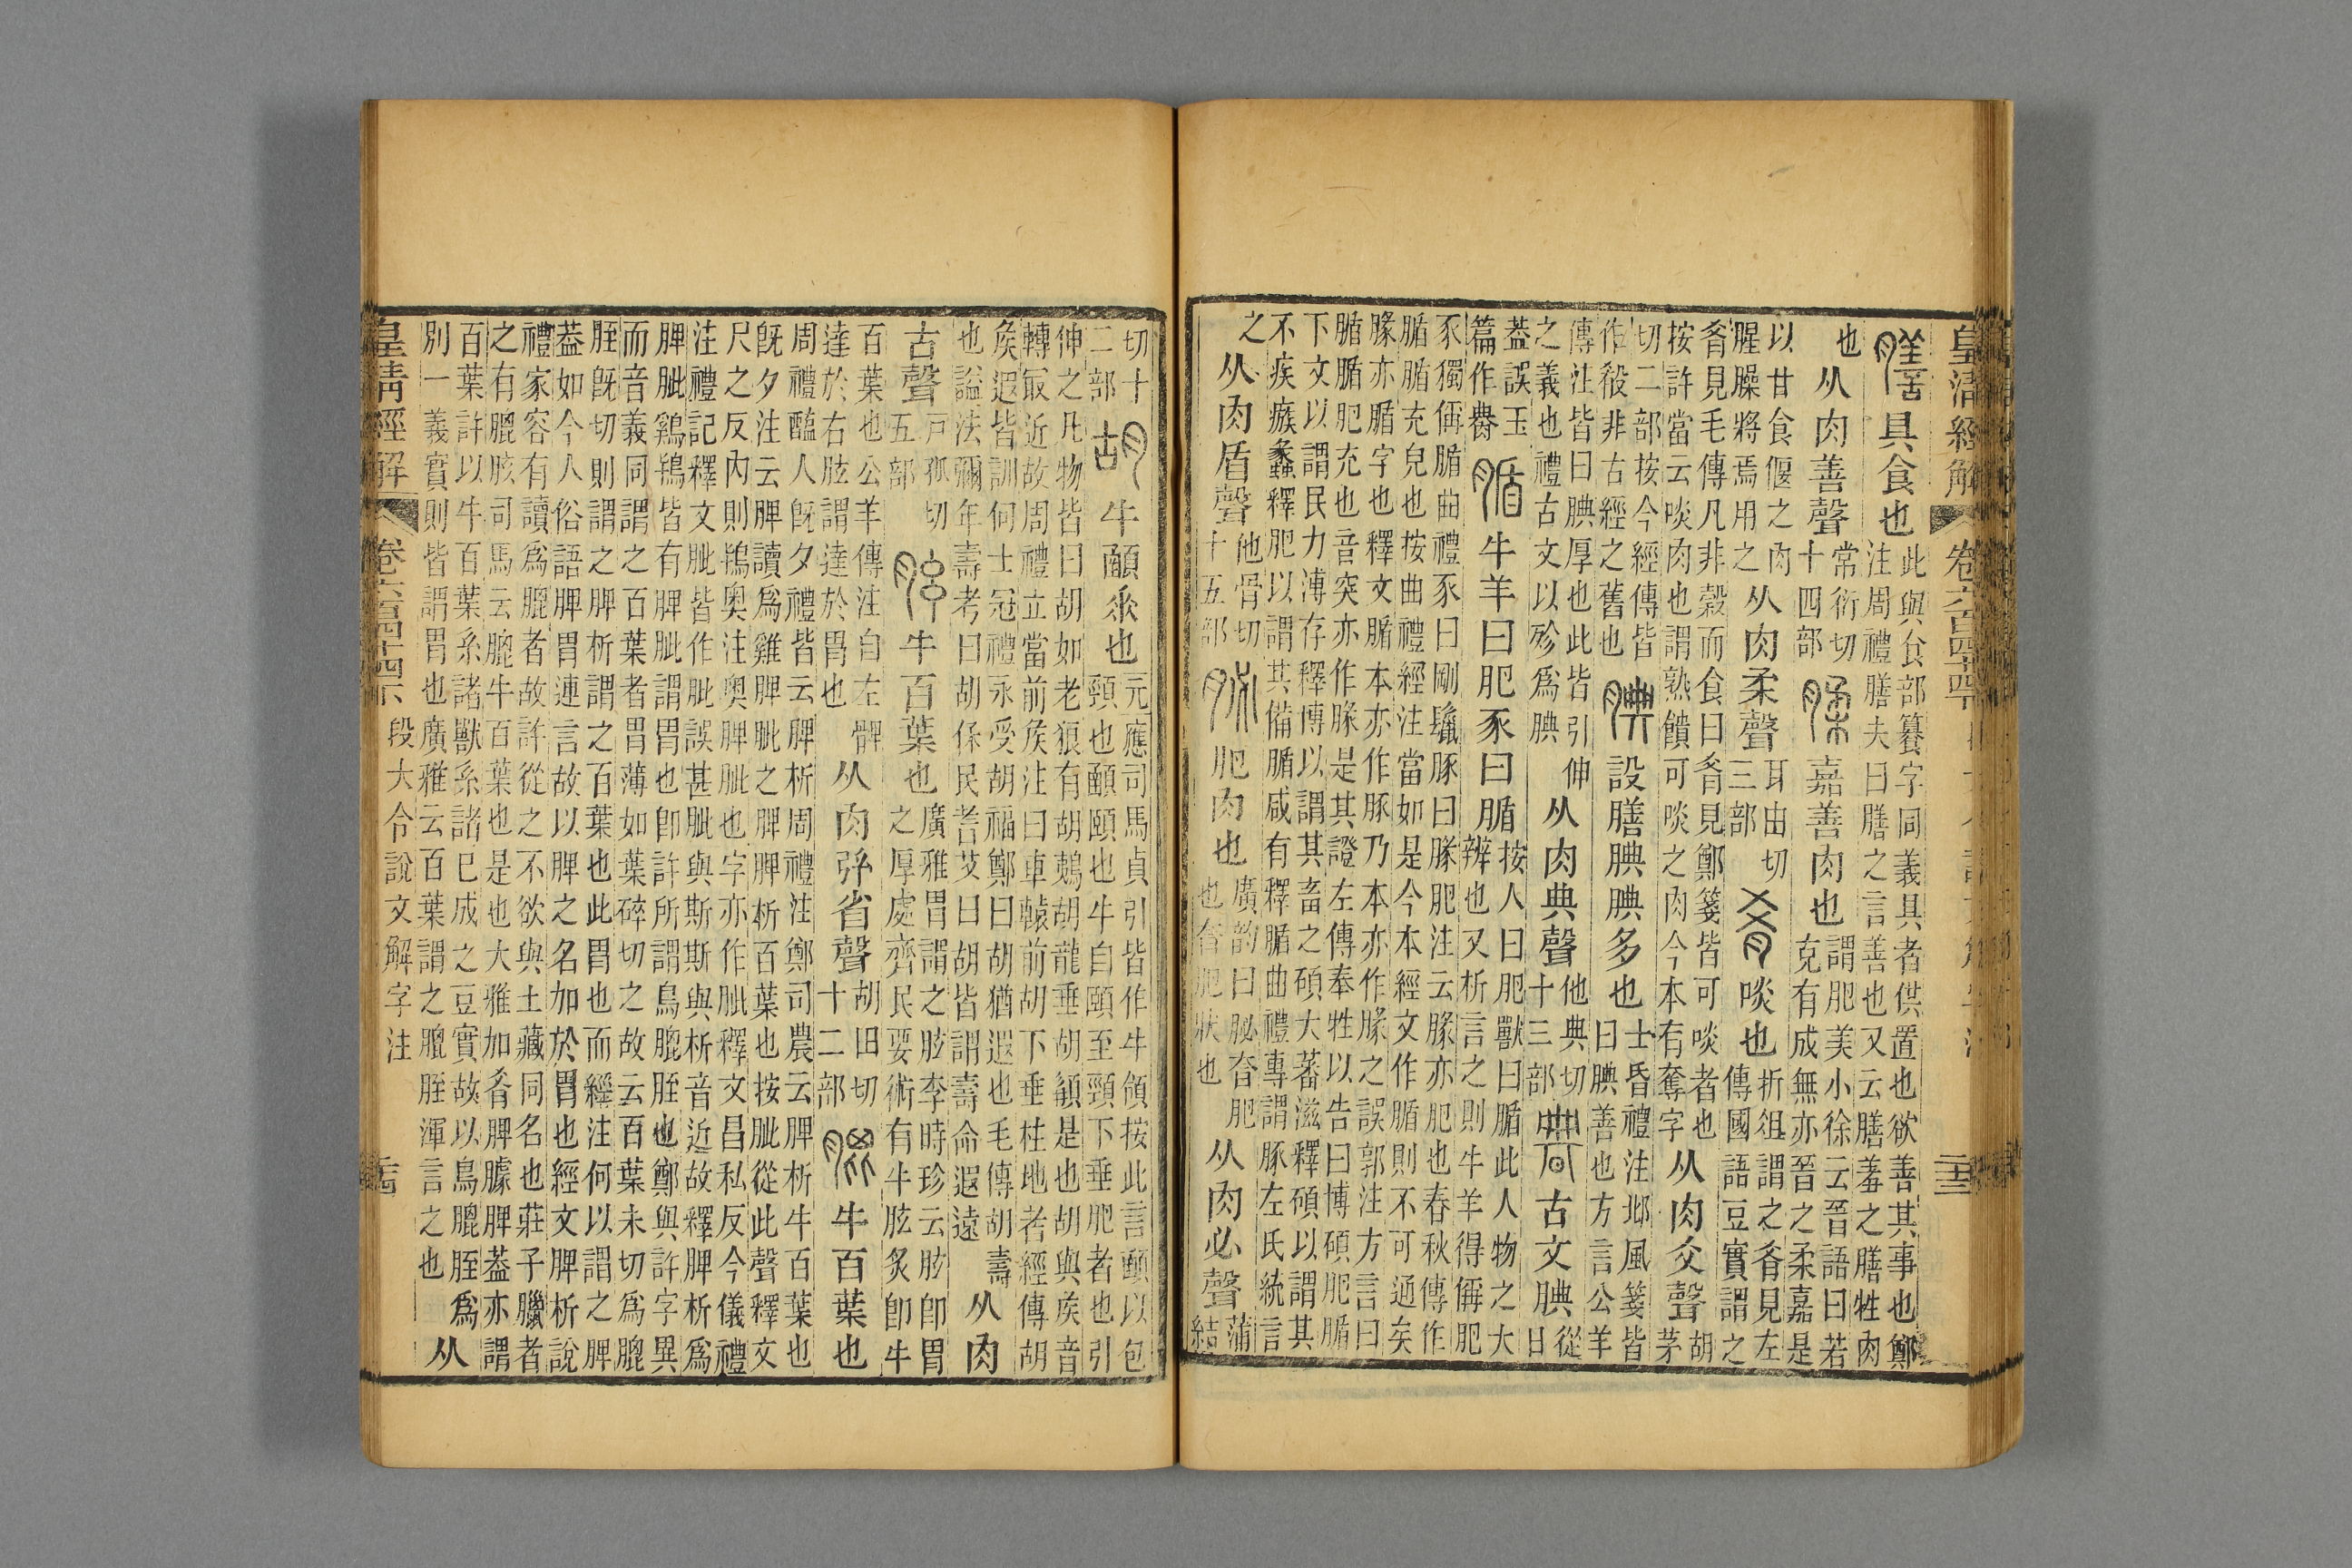 皇清經解 卷六百四十四 二十三
膳具食也此與食部籑字同義具者供置也欲善其事也鄭注周禮膳夫曰膳之言善也又云膳羞之膳牲肉
也从肉善聲常衍切十四部腬嘉善肉也謂肥美小徐云晉語曰若克有成無亦晉之柔嘉是
以甘食偃之肉腥臊將焉用之从肉柔聲耳由切三部肴啖也折俎謂之肴見左傳國語豆實謂之
肴見毛傳凡非穀而食曰肴見鄭箋皆可啖者也按許當云啖肉也謂熟饋可啖之肉今本有奪字从肉爻聲胡茅
切二部按今經傳皆作殽非古經之舊也腆設膳腆腆多也士昏禮注邶風箋皆曰腆善也方言公羊
傳注皆曰腆厚也此皆引伸之義也禮古文以殄爲腆从肉典聲他典切十三部古文腆從日
葢誤玉篇作腯牛羊曰肥豕曰腯按人曰肥獸曰腯此人物之大辨也又析言之則牛羊得偁肥
豕獨偁腯曲禮豕曰剛鬣豚曰腞肥注云腞亦肥也春秋傳作腯腯充皃也按曲禮經注當如是今本經文作腯則不可通矣
腞亦腯字也釋文腯本亦作豚乃本亦作腞之誤郭注方言曰腯腯肥充也音突亦作腞是其證左傳奉牲以告曰博碩肥腯
下文以謂民力溥存釋博以謂其畜之碩大蕃滋釋碩以謂其不疾瘯蠡釋肥以謂其備腯咸有釋腯曲禮專謂豚左氏統言
之从肉盾聲他骨切十五部䏟肥肉也廣韵曰䏟㚊肥也㚊肥狀也从肉必聲蒲結
切十二部胡牛顄𠂹也元應司馬貞引皆作牛頷按此言顄以包頸也顄頤也牛自頤至頸下垂肥者也引
伸之凡物皆曰胡如老狼有胡鵜胡龍垂胡䫇是也胡與矦音轉冣近故周禮立當前矦注曰車轅前胡下垂柱地者經傳胡
矦遐皆訓何士冠禮永受胡福鄭曰胡猶遐也毛傳胡壽也謚法彌年壽考曰胡保民耆艾曰胡皆謂壽命遐遠从肉
古聲戶孤切五部胘牛百葉也廣雅胃謂之胘李時珍云胘卽胃之厚處齊民要術有牛胘炙卽牛
百葉也公羊傳注自左髀達於右胘謂達於胃也从肉弦省聲胡田切十二部膍牛百葉也
周禮醢人旣夕禮皆云脾析周禮注鄭司農云脾析牛百葉也旣夕注云脾讀爲雞脾肶之脾脾析百葉也按肶從此聲釋文
尺之反內則鴇奧注奧脾肶也字亦作肶釋文昌私反今儀禮注禮記釋文肶皆作肶誤甚肶與斯斯與析音近故釋脾析爲
脾肶鷄鴇皆有脾肶謂胃也卽許所謂鳥膍胵也鄭與許字異而音義同謂之百葉者胃薄如葉碎切之故云百葉未切爲膍
胵旣切則謂之脾析謂之百葉也此胃也而經注何以謂之脾葢如今人俗語脾胃連言故以脾之名加於胃也經文脾析說
禮家容有讀爲膍者故許從之不欲與土藏同名也莊子臘者之有膍胲司馬云膍牛百葉也是也大雅加肴脾臄脾葢亦謂
百葉許以牛百葉系諸獸系諸已成之豆實故以鳥膍胵爲別一義實則皆謂胃也廣雅云百葉謂之膍胵渾言之也从
皇清經解 卷六百四十四下 段大令說文解字注 二十四